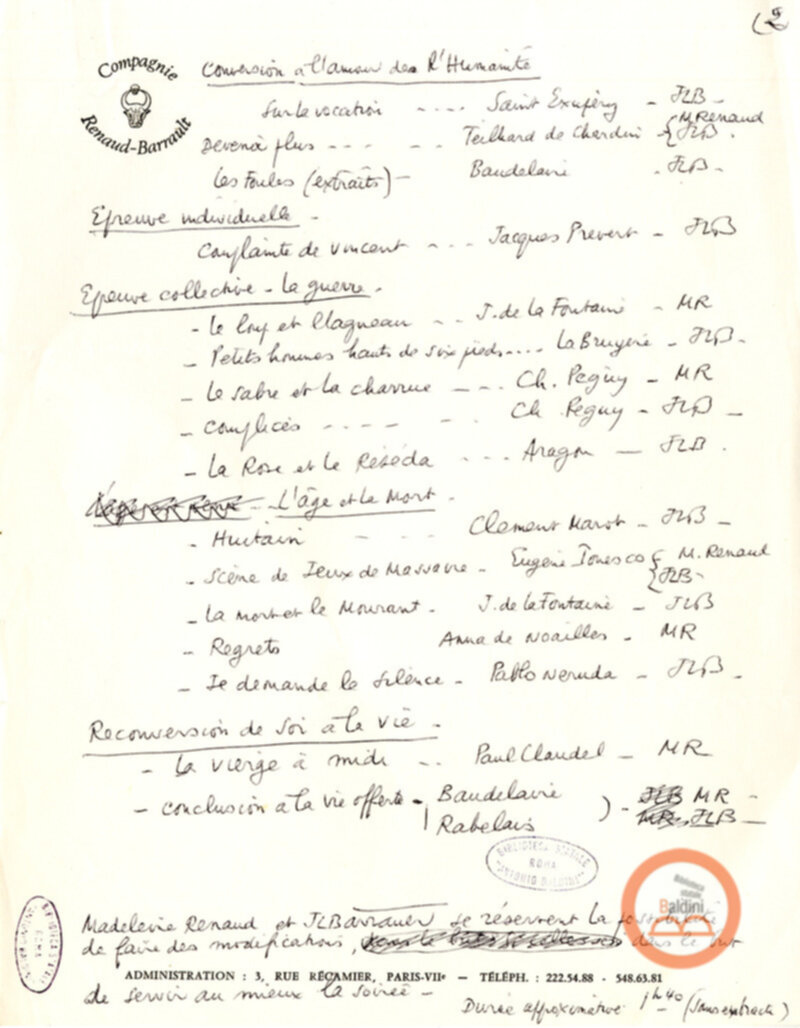 (2
Compagnie
Renaud-Barrault
Conversion à l'amour de l'Humanité
Sur la vocation .... Saint Exupéry - JLB -
Devenir plus - - - - Teilhard de Chardin - { M Renaud
JLB .
Les Foules (extraits) - Baudelaire . JLB -
Epreuve individuelle -
Complainte de Vincent - - . Jacques Prevert - JLB
Epreuve collective - La guerre -
- Le loup et l'agneau - . . J. de la Fontaine - MR
- Petits hommes hauts de six pieds .... La Bruyère - JLB -
- Le sabre et la charrue - - - Ch. Peguy - MR
- Complices - - - - - . Ch Peguy - JLB -
- La Rose et le Réséda . - - Aragon - JLB .
- L'âge et la Mort -
- Huitain - - - Clement Marot - JLB -
- Scène de Jeux de Massacre - Eugène Ionesco { M. Renaud
{ JLB -
- La mort et le Mourant - J. de la Fontaine - JLB
- Regrets Anna de Noailles - MR
- Je demande le silence - Pablo Neruda - JLB -
Reconversion de soi à la vie -
- La vierge à midi - . Paul Claudel - MR
- Conclusion à la vie offerte - Baudelaire ) - JLB MR -
Rabelais MR. JLB -
BIBLIOTECA STATALE
ROMA
"ANTONIO BALDINI"
Biblioteca
statale
Baldini
Madeleine Renaud et JLBarrault se réservent la possibilité
de faire des modifications, dans le but
ADMINISTRATION : 3, RUE RÉCAMIER, PARIS-VIIe — TÉLÉPH. : 222.54.88 - 548.63.81
de servir au mieux la soirée -
Durée approximative 1h40 (sans entracte)